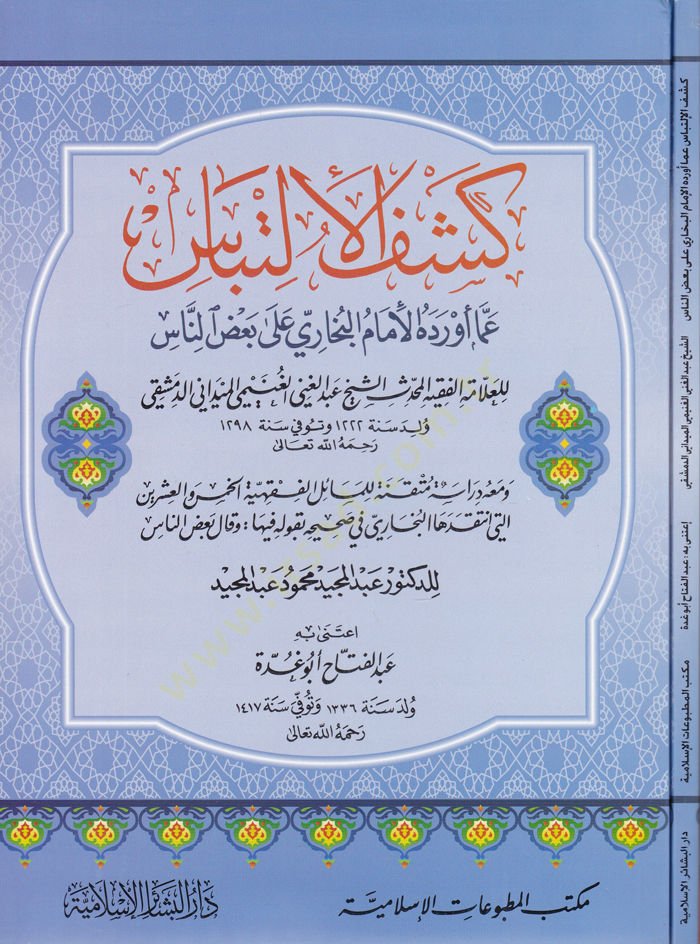 كشف الالتباس
عما أورده الإمام البخاري على بعض الناس
للعلامة الفقيه المحدث الشيخ عبد الغني الغنيمي الميداني الدمشقي
ولد سنة ١٢٢٢ وتوفي سنة ١٢٩٨
رحمه الله تعالى
ومعه دراسة متقنة للمسائل الفقهية الخمس والعشرين
التي انتقدها البخاري في صحيحه بقوله فيها: وقال بعض الناس
للدكتور عبد المجيد محمود عبد المجيد
اعتنى به
عبد الفتاح أبو غدة
ولد سنة ١٣٣٦ وتوفي سنة ١٤١٧
رحمه الله تعالى
مكتب المطبوعات الإسلامية
دار البشائر الإسلامية
كشف الإلتباس عما أورده الإمام البخاري على بعض الناس
الشيخ عبد الغني الغنيمي الميداني الدمشقي
إعتنى به : عبد الفتاح أبو غدة
مكتب المطبوعات الإسلامية
دار البشائر الإسلامية